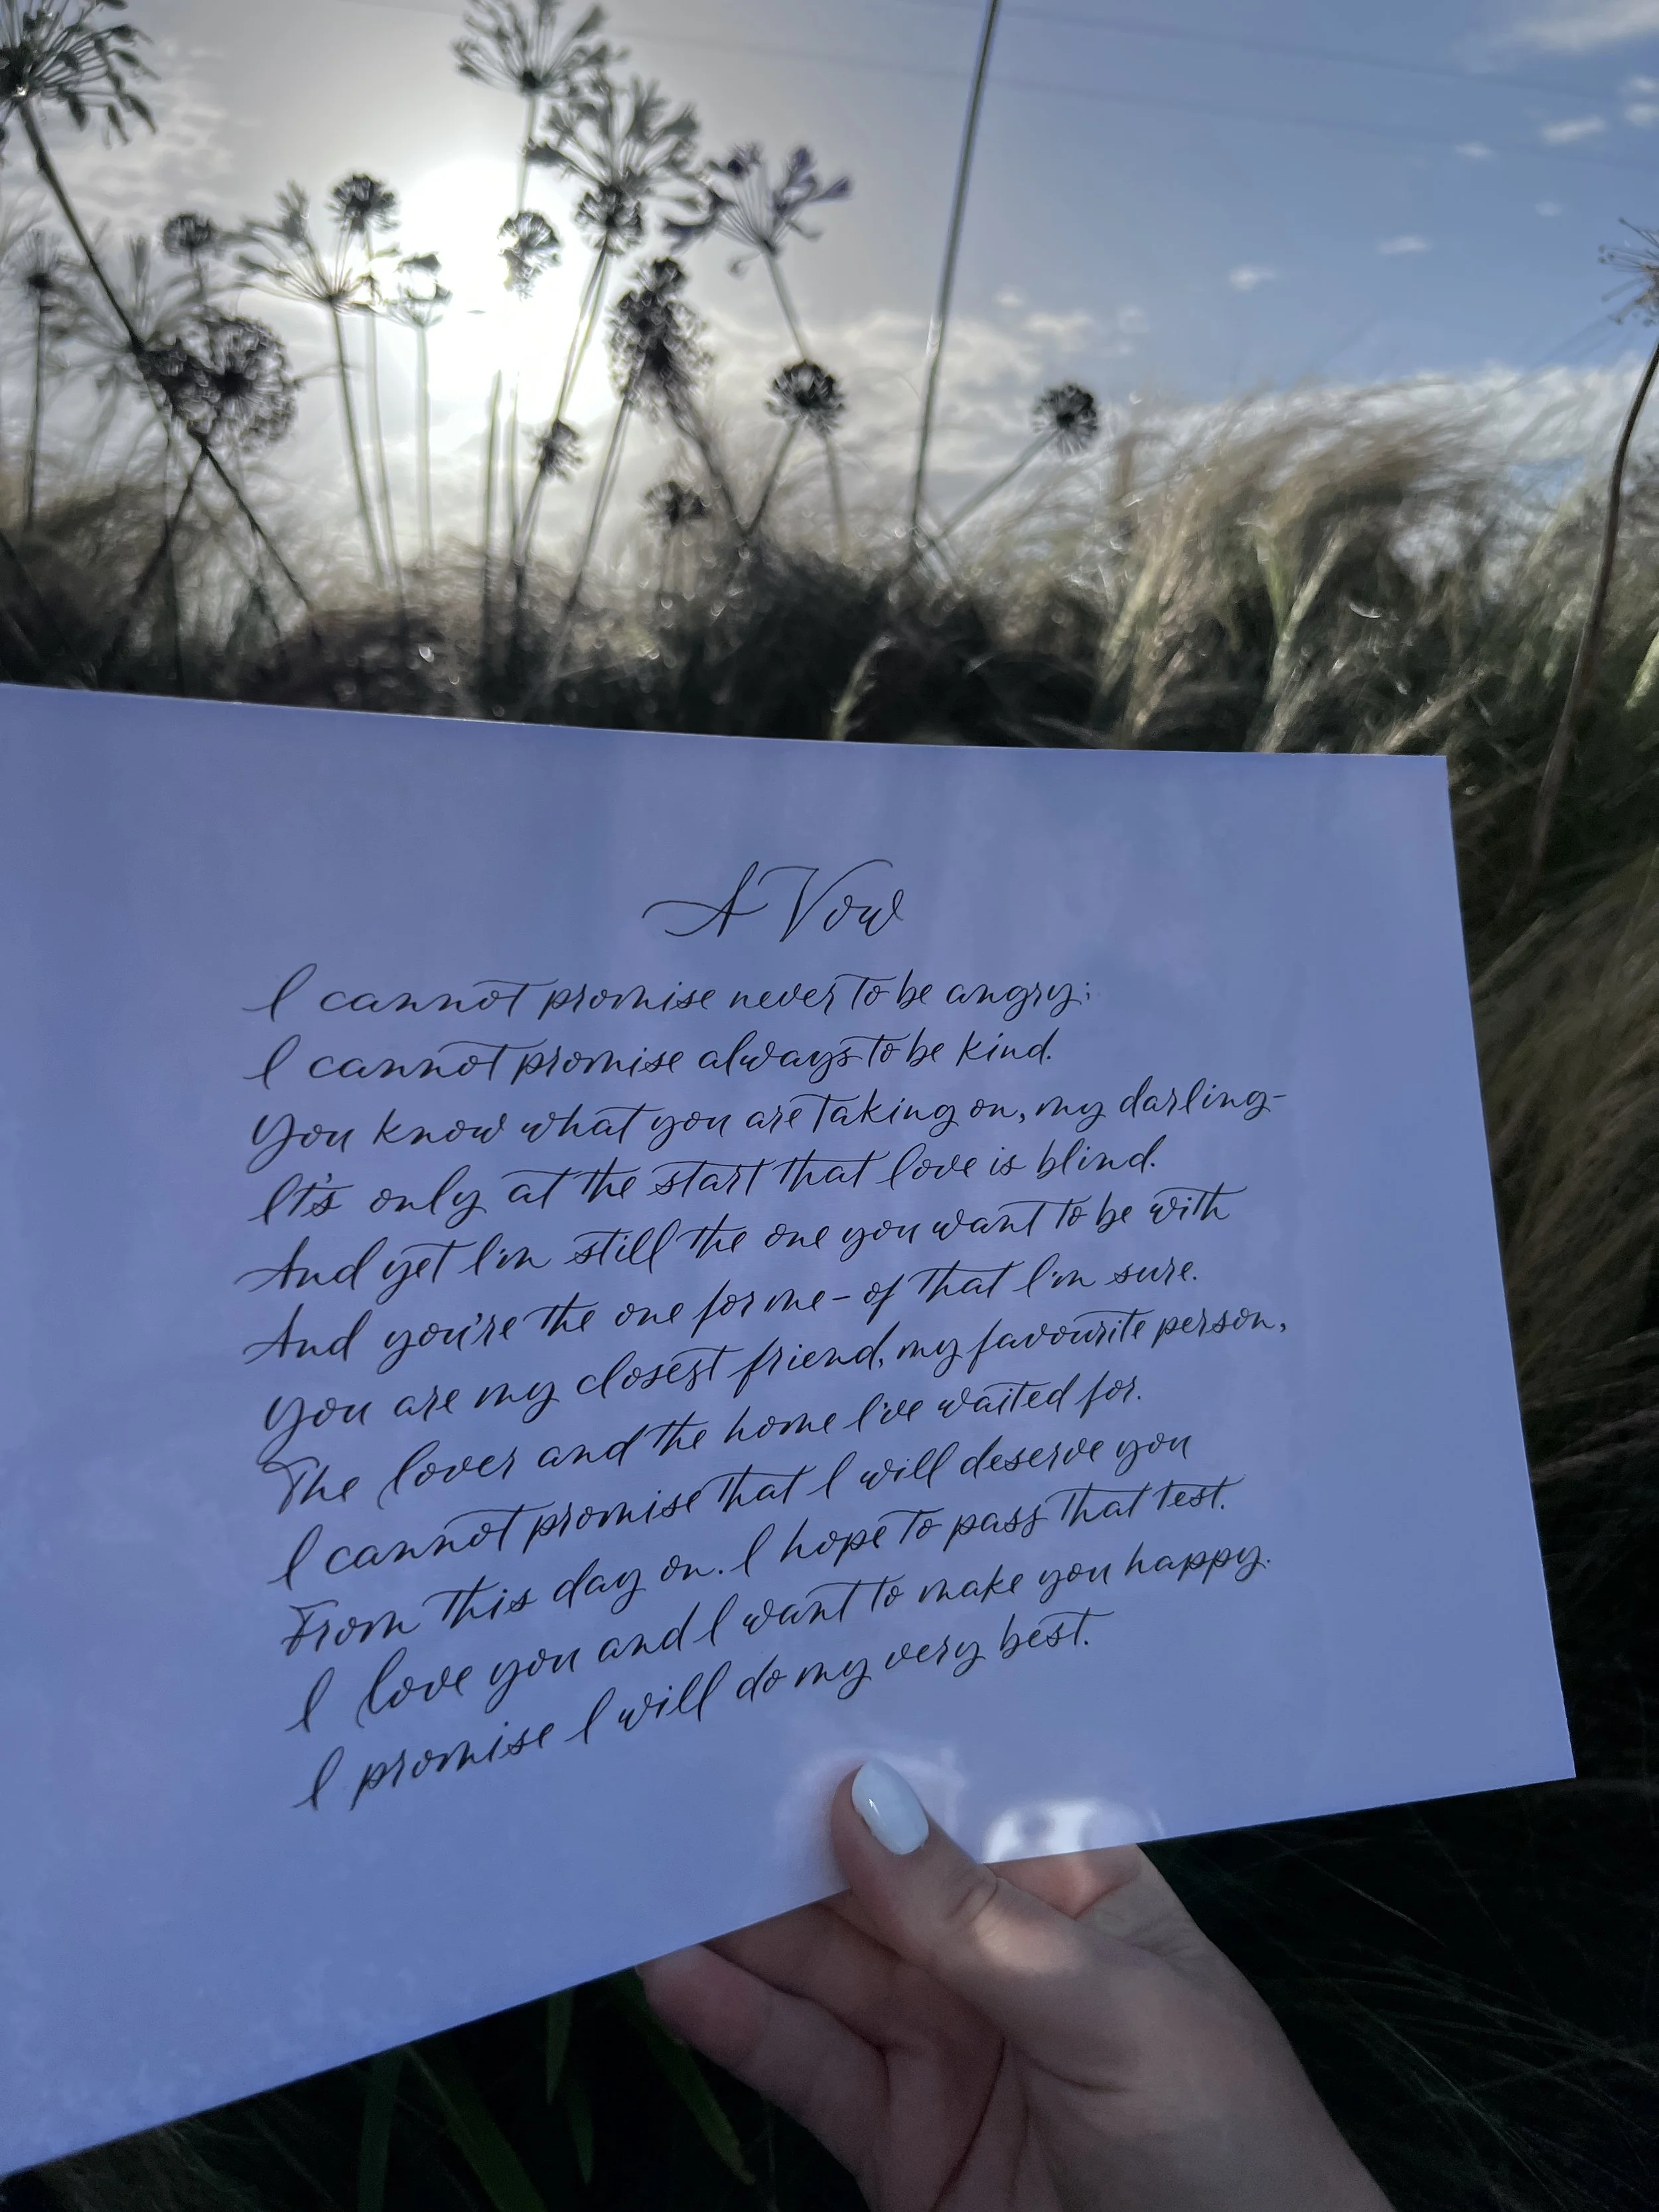 A Vow
I cannot promise never to be angry;
I cannot promise always to be kind.
You know what you are taking on, my darling–
It's only at the start that love is blind.
And yet I'm still the one you want to be with
And you're the one for me – of that I'm sure.
You are my closest friend, my favourite person,
The lover and the home I've waited for.
I cannot promise that I will deserve you
From this day on. I hope to pass that test.
I love you and I want to make you happy.
I promise I will do my very best.